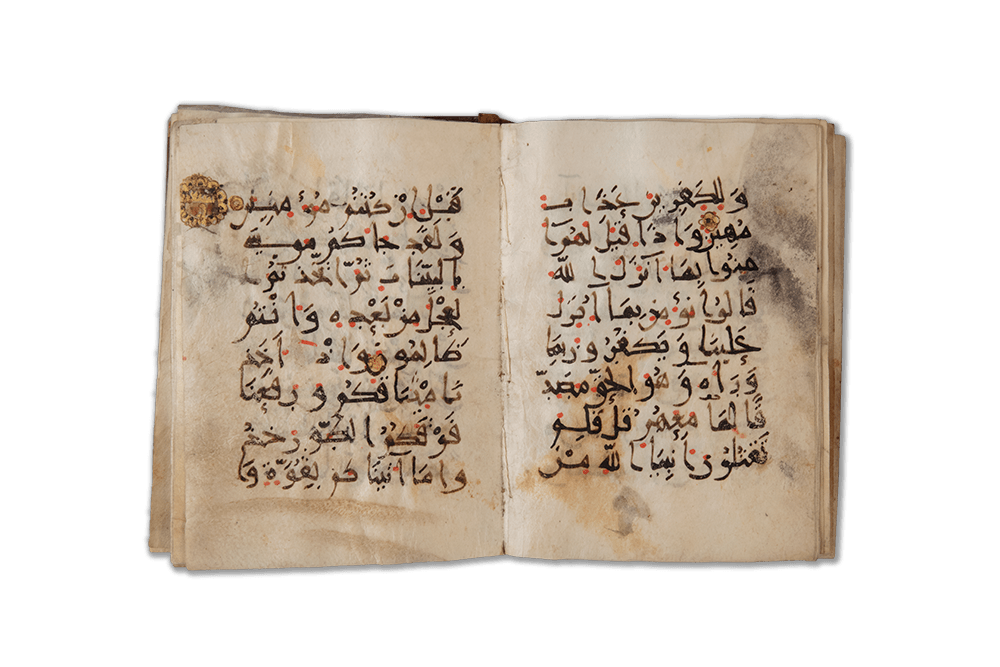 وللكفرين عذاب
مهين واذا قيل لهم ا
منوا بما انزل الله
قالوا نؤمن بما انزل
علينا ويكفرون بما
وراه وهو الحق مصد
قا لما معهم قل فلم
تقتلون انبيا الله من
قبل ان كنتم مؤمنين
ولقد جاكم موسى
بالبينات ثم اتخذتم ا
لعجل من بعده وانتم
ظالمون واذ اخذ
نا ميثاقكم ورفعنا
فوقكم الطور خذ
وا ما اتيناكم بقوة وا